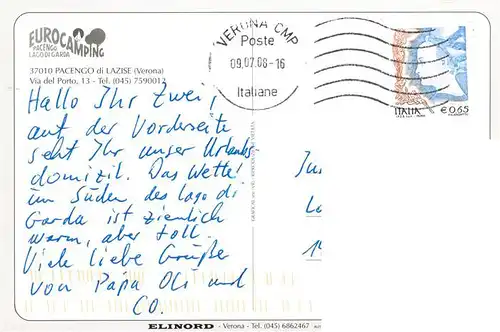 EUROCAMPING
PACENGO
LAGO DI GARDA
37010 PACENGO di LAZISE (Verona)
Via del Porto, 13 - Tel. (045) 7590012
VERONA CMP
Poste
09.07.08-16
Italiane
ITALIA
€ 0,65
Hallo Ihr Zwei,
auf der Vorderseite
seht Ihr unser Urlaubs
domizil. Das Wetter
im Süden des lago di
Garda ist ziemlich
warm, aber toll.
Viele liebe Grüße
von Papa Oli und
CO.
ELINORD - Verona - Tel. (045) 6862467